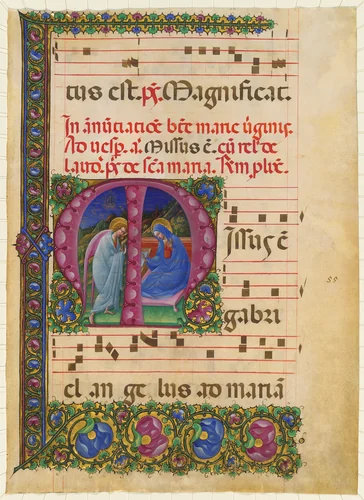 tus est. ps. Magnificat.
In ānūtiatiōe bēte marie v̄ginis.
Ad uesp. a. Missus ē. cū rel. de
laud. ps. de scā maria.
M issus ē
gabri
55
el an ge lus ad mariā